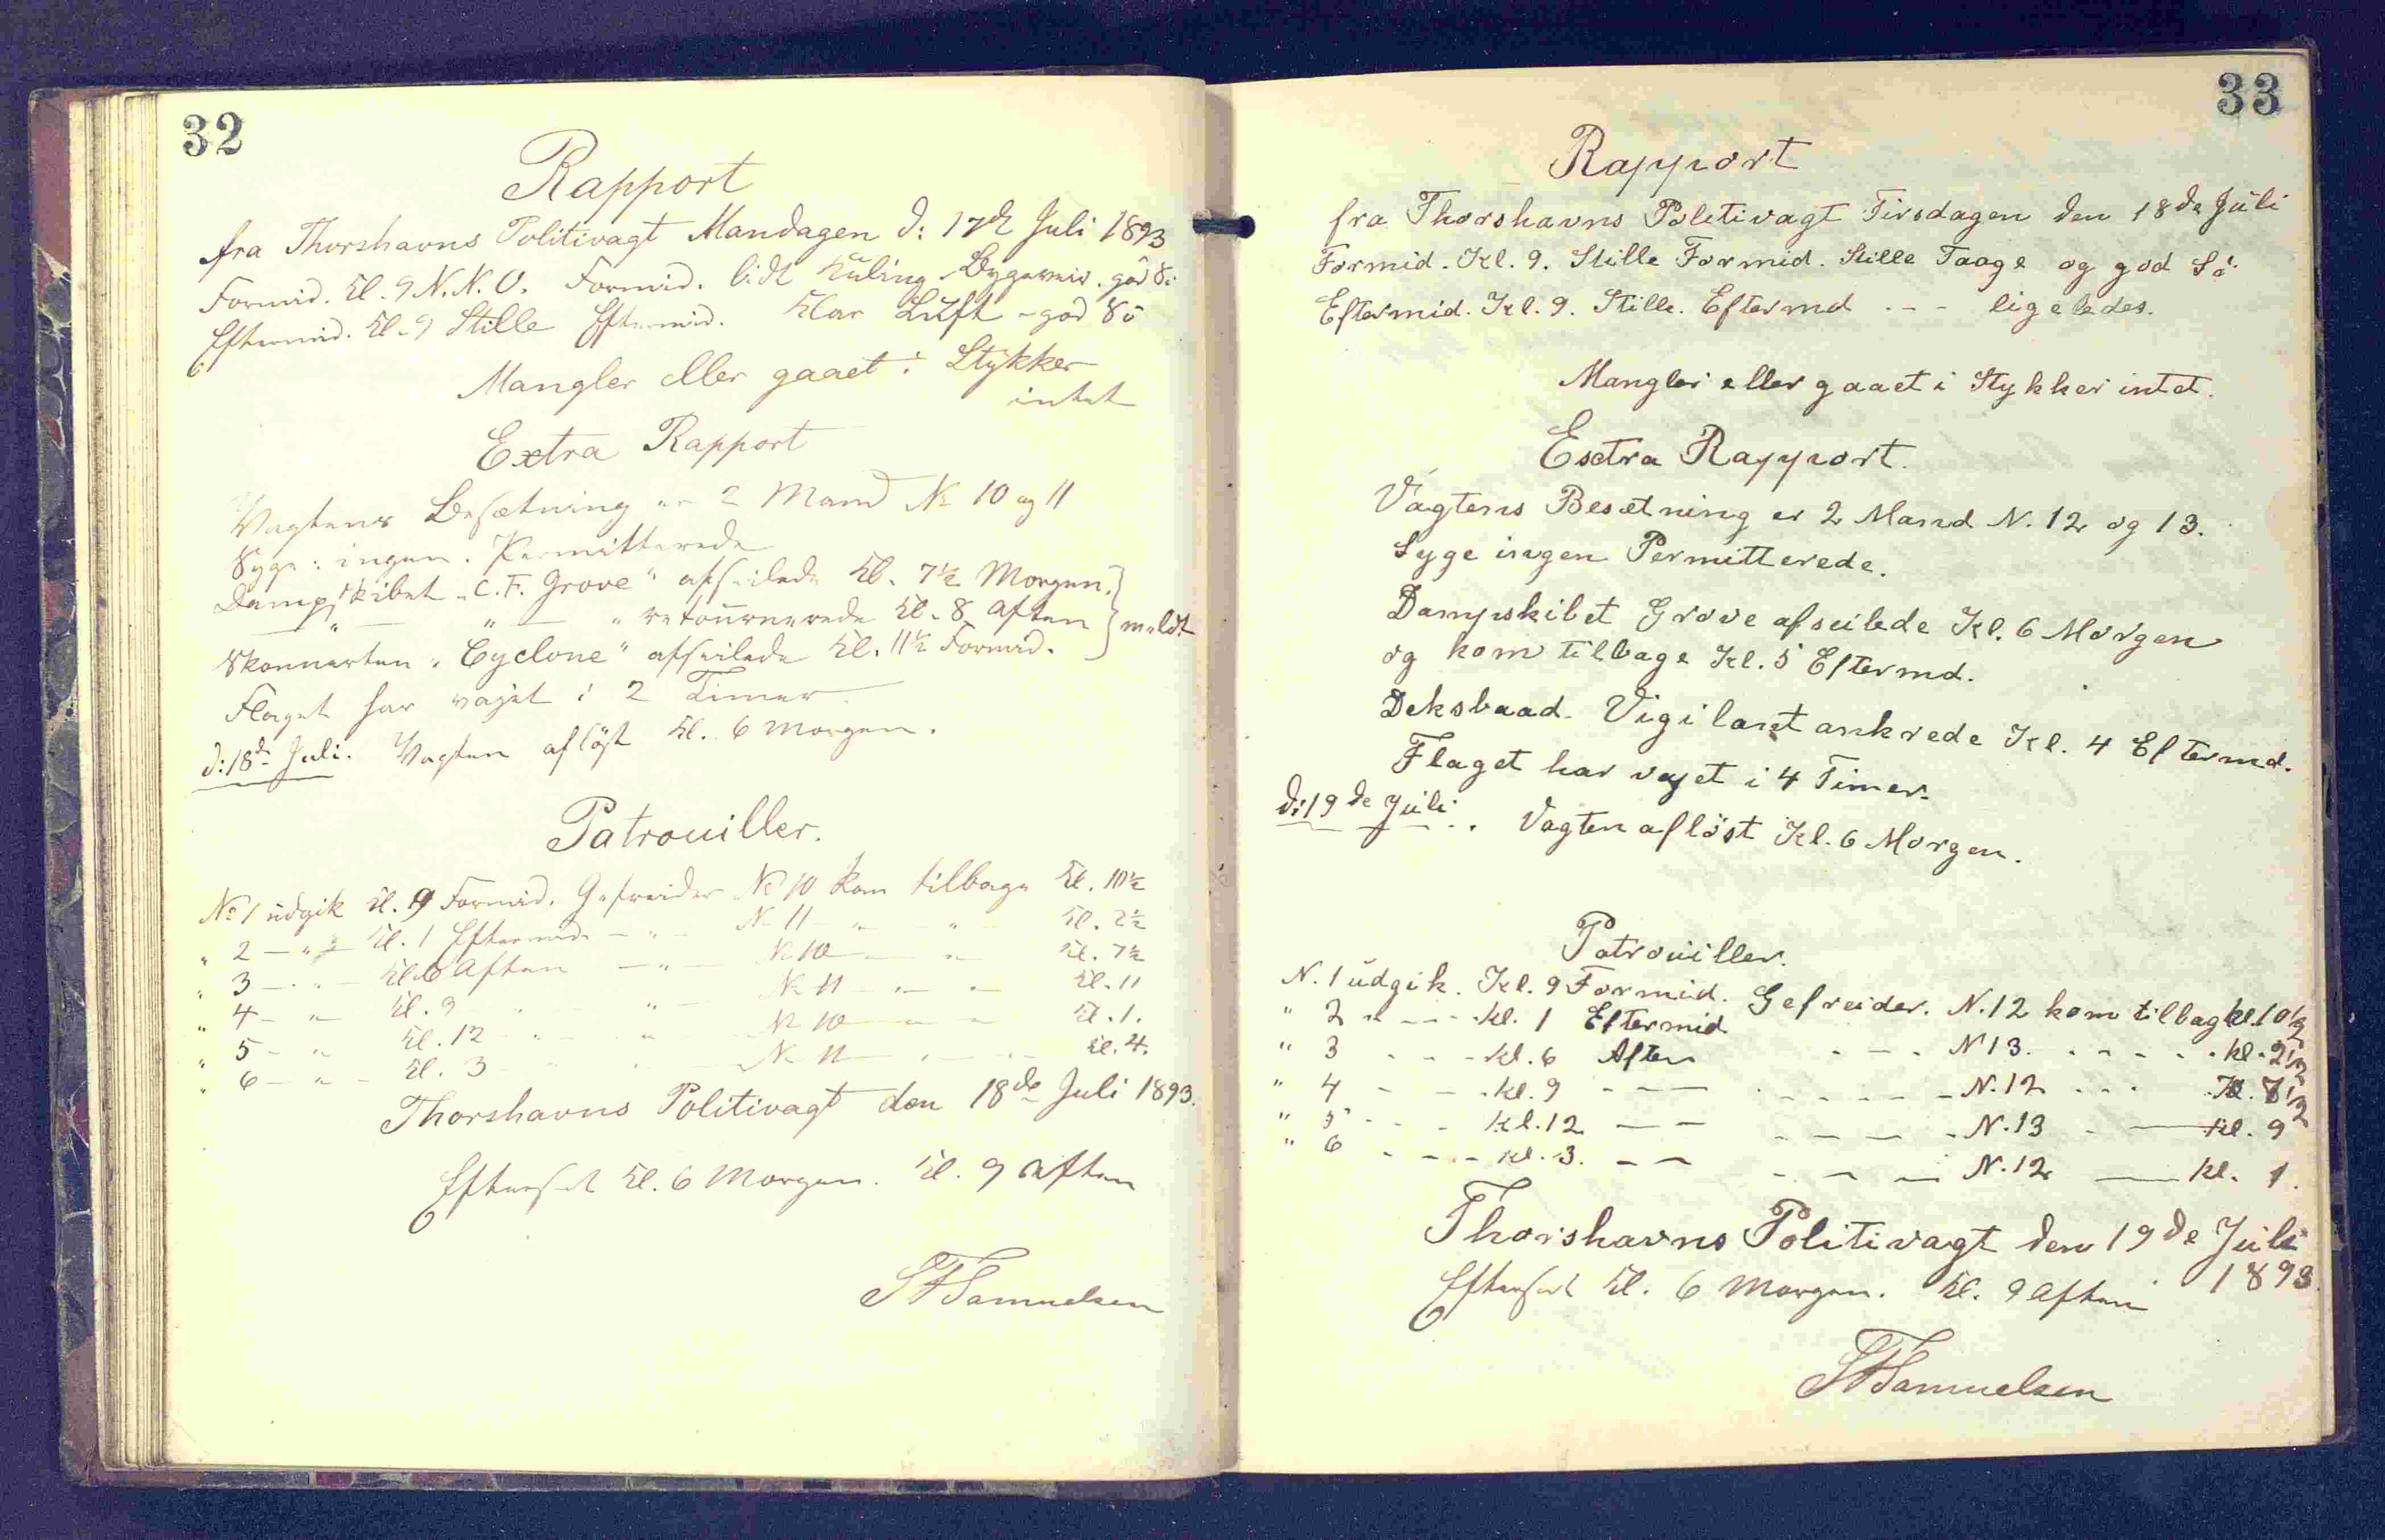 32
Rapport
fra Thorshavns Politivagt Mandagen d: 17de Juli 1893
Formid. Kl. 9 N.N.O. Formid. lidt Kuling - Bygeveir. god Sö
Eftermid. Kl. 9 Stille Eftermid. Klar Luft - god Sö
Mangler eller gaaet i Stykker
intet
Extra Rapport
Vagtens Besætning er 2 Mand No 10 og 11
Syge: ingen. Permitterede
Dampskibet "C. F. Grove" afseilede Kl. 7½ Morgen. }
— " — " — " retournerede Kl. 8 Aften } meldt
Skonnerten "Cyclone" afseilede Kl. 11½ Formid. }
Flaget har vajet i 2 Timer
d: 18de Juli. Vagten aflöst Kl. 6 Morgen.
Patrouiller.
No 1 udgik Kl. 9 Formid. Gefreider No 10 kom tilbage Kl. 10½
" 2 — " — Kl. 1 Eftermid. — " — No 11 — " — " — Kl. 2½
" 3 — " — Kl. 6 Aften — " — No 10 — " — " — Kl. 7½
" 4 — " — Kl. 9 — " — No 11 — " — " — Kl. 11
" 5 — " — Kl. 12 — " — No 10 — " — " — Kl. 1.
" 6 — " — Kl. 3 — " — No 11 — " — " — Kl. 4.
Thorshavns Politivagt den 18de Juli 1893.
Efterseet Kl. 6 Morgen. Kl. 9 Aften
Samuelsen
33
Rapport
fra Thorshavns Politivagt Tirsdagen den 18de Juli
Formid. Kl. 9. Stille Formid. Stille Taage og god Sö.
Eftermid. Kl. 9. Stille. Eftermd - - - ligeledes.
Mangler eller gaaet i Stykker intet.
Esctra Rapport.
Vagtens Besætning er 2 Mand N. 12 og 13.
Syge ingen Permitterede.
Dampskibet Grove afseilede Kl. 6 Morgen
og kom tilbage Kl. 5 Eftermd.
Deksbaad. Vigilant ankrede Kl. 4 Eftermd.
Flaget har vajet i 4 Timer.
d: 19de Juli. Vagten aflöst Kl. 6 Morgen.
Patrouiller.
N. 1 udgik. Kl. 9 Formid. Gefreider. N. 12 kom tilbag kl. 10½
" 2 " - - - kl. 1 Eftermid - - - N 13. - - - - kl. 2½
" 3 - - - kl. 6 Aften - - - - N. 12 - - - Kl. 7½
" 4 - - - kl. 9 - - - - - - - N. 13 - — kl. 9
" 5 - - - kl. 12 — — - - - - N. 12 — kl. 1.
" 6 - - - kl. 3. — —
Thorshavns Politivagt den 19de Juli
1893
Efterseet Kl. 6 Morgen. Kl. 9 Aften
Samuelsen